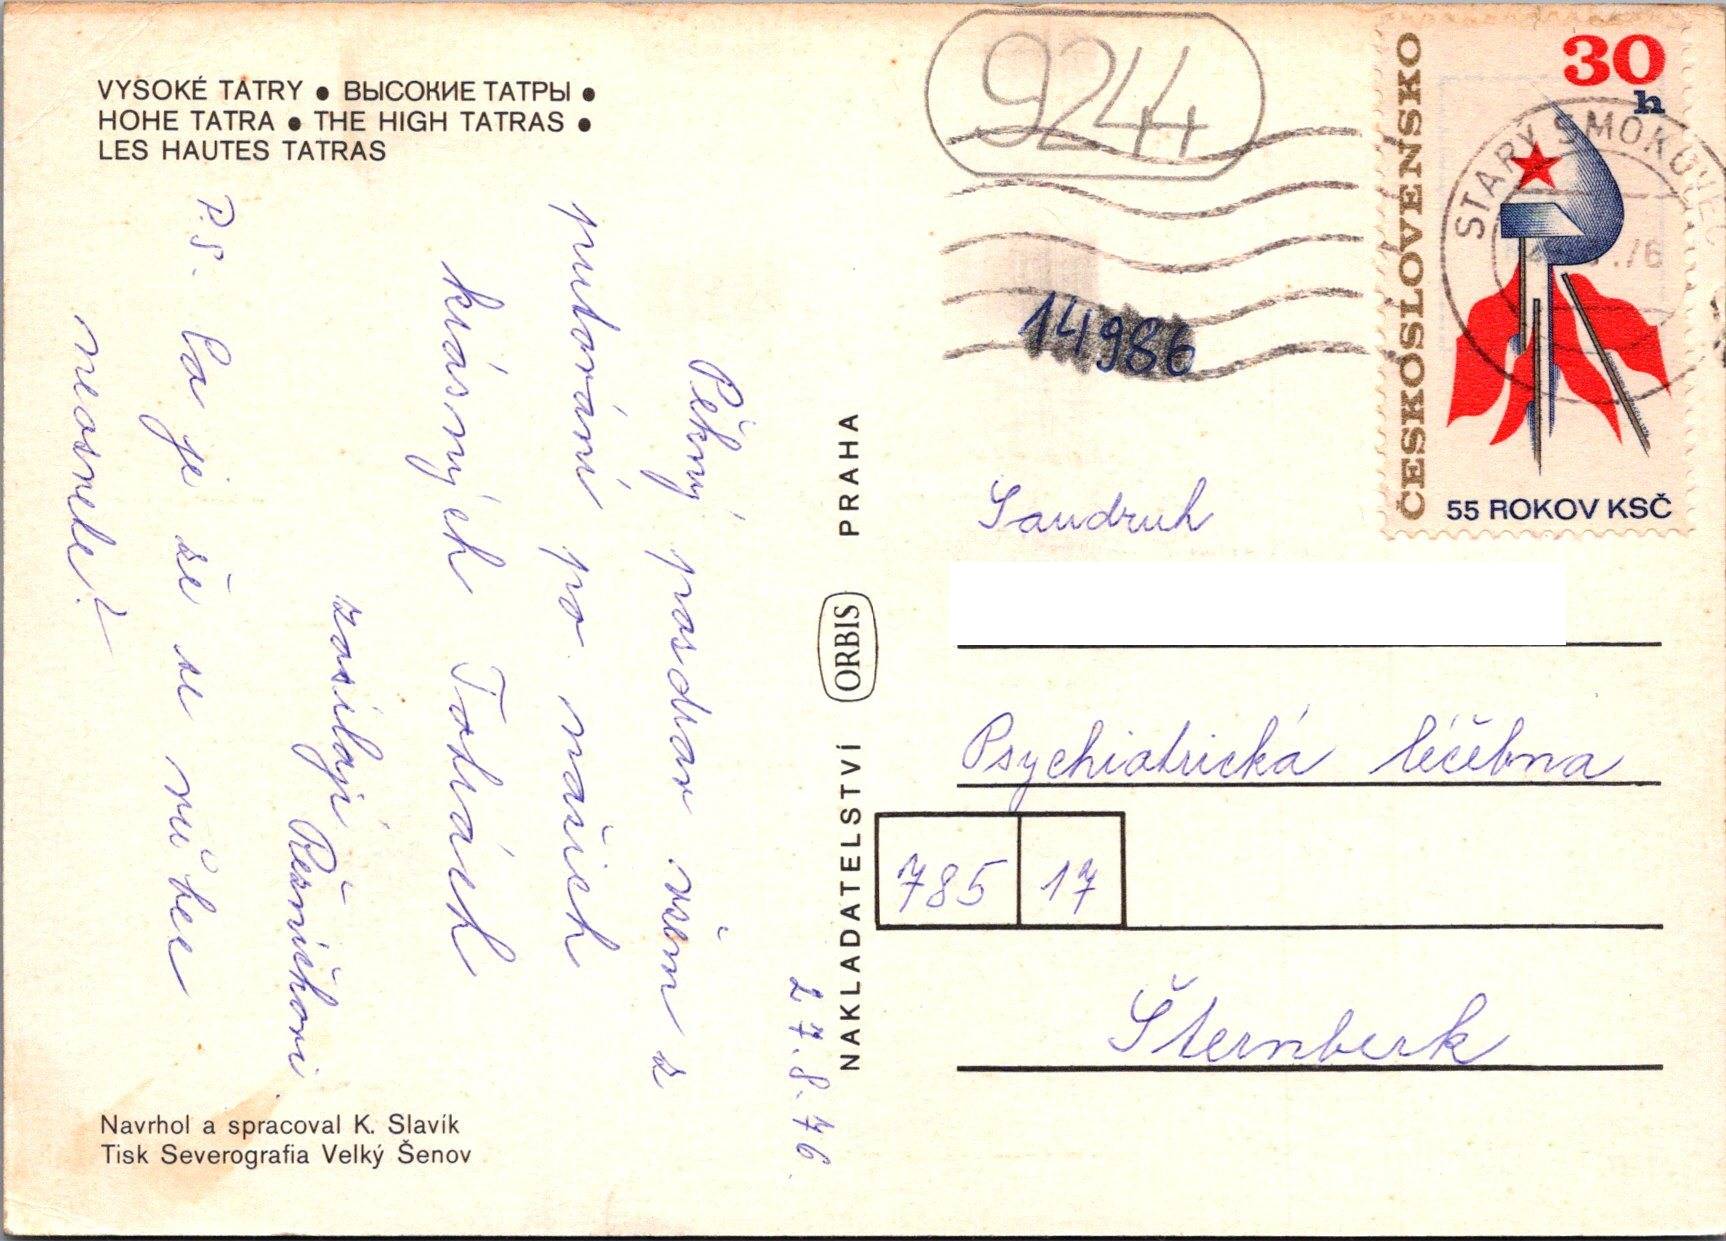 VYSOKÉ TATRY • ВЫСОКИЕ ТАТРЫ •
HOHE TATRA • THE HIGH TATRAS •
LES HAUTES TATRAS
27.8.76.
Pěkný pozdrav všem z
putování po našich
krásných Tatrách
zasílají Řezníčkovi
P.S. Co je že se vůbec
neozvete?
Navrhol a spracoval K. Slavík
Tisk Severografia Velký Šenov
NAKLADATELSTVÍ ORBIS PRAHA
924
14986
ČESKOSLOVENSKO
30
h
55 ROKOV KSČ
STARÝ SMOKOVEC
Soudruh
Psychiatrická léčebna
785 17
Šternberk